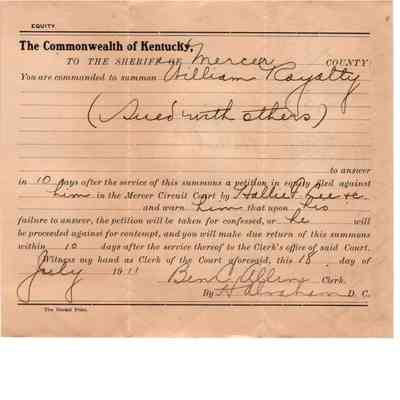 EQUITY.
The Commonwealth of Kentucky,
TO THE SHERIFF of Mercer COUNTY
You are commanded to summon William Royalty
(Sued with others)
to answer
in 10 days after the service of this summons a petition in equity filed against
him in the Mercer Circuit Court by Hallie Lee &c
and warn him that upon his
failure to answer, the petition will be taken for confessed, or he will
be proceeded against for contempt, and you will make due return of this summons
within 10 days after the service thereof to the Clerk's office of said Court.
Witness my hand as Clerk of the Court aforesaid, this 18 day of
July 1911 Ben C. Allin Clerk.
By D. C.
The Herald Print.